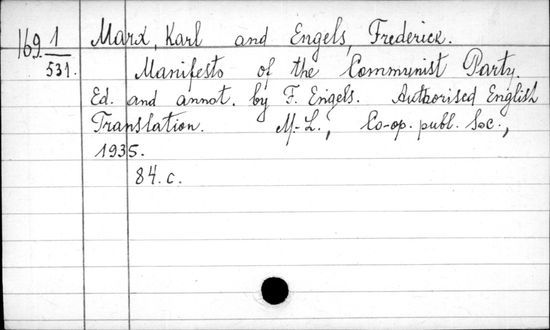 169 1/531. Marx, Karl and Engels, Frederick.
Manifesto of the Communist Party.
Ed. and annot. by F. Engels. Authorised English
Translation. M.-L., Co-op. publ. Soc.,
1935.
84.c.